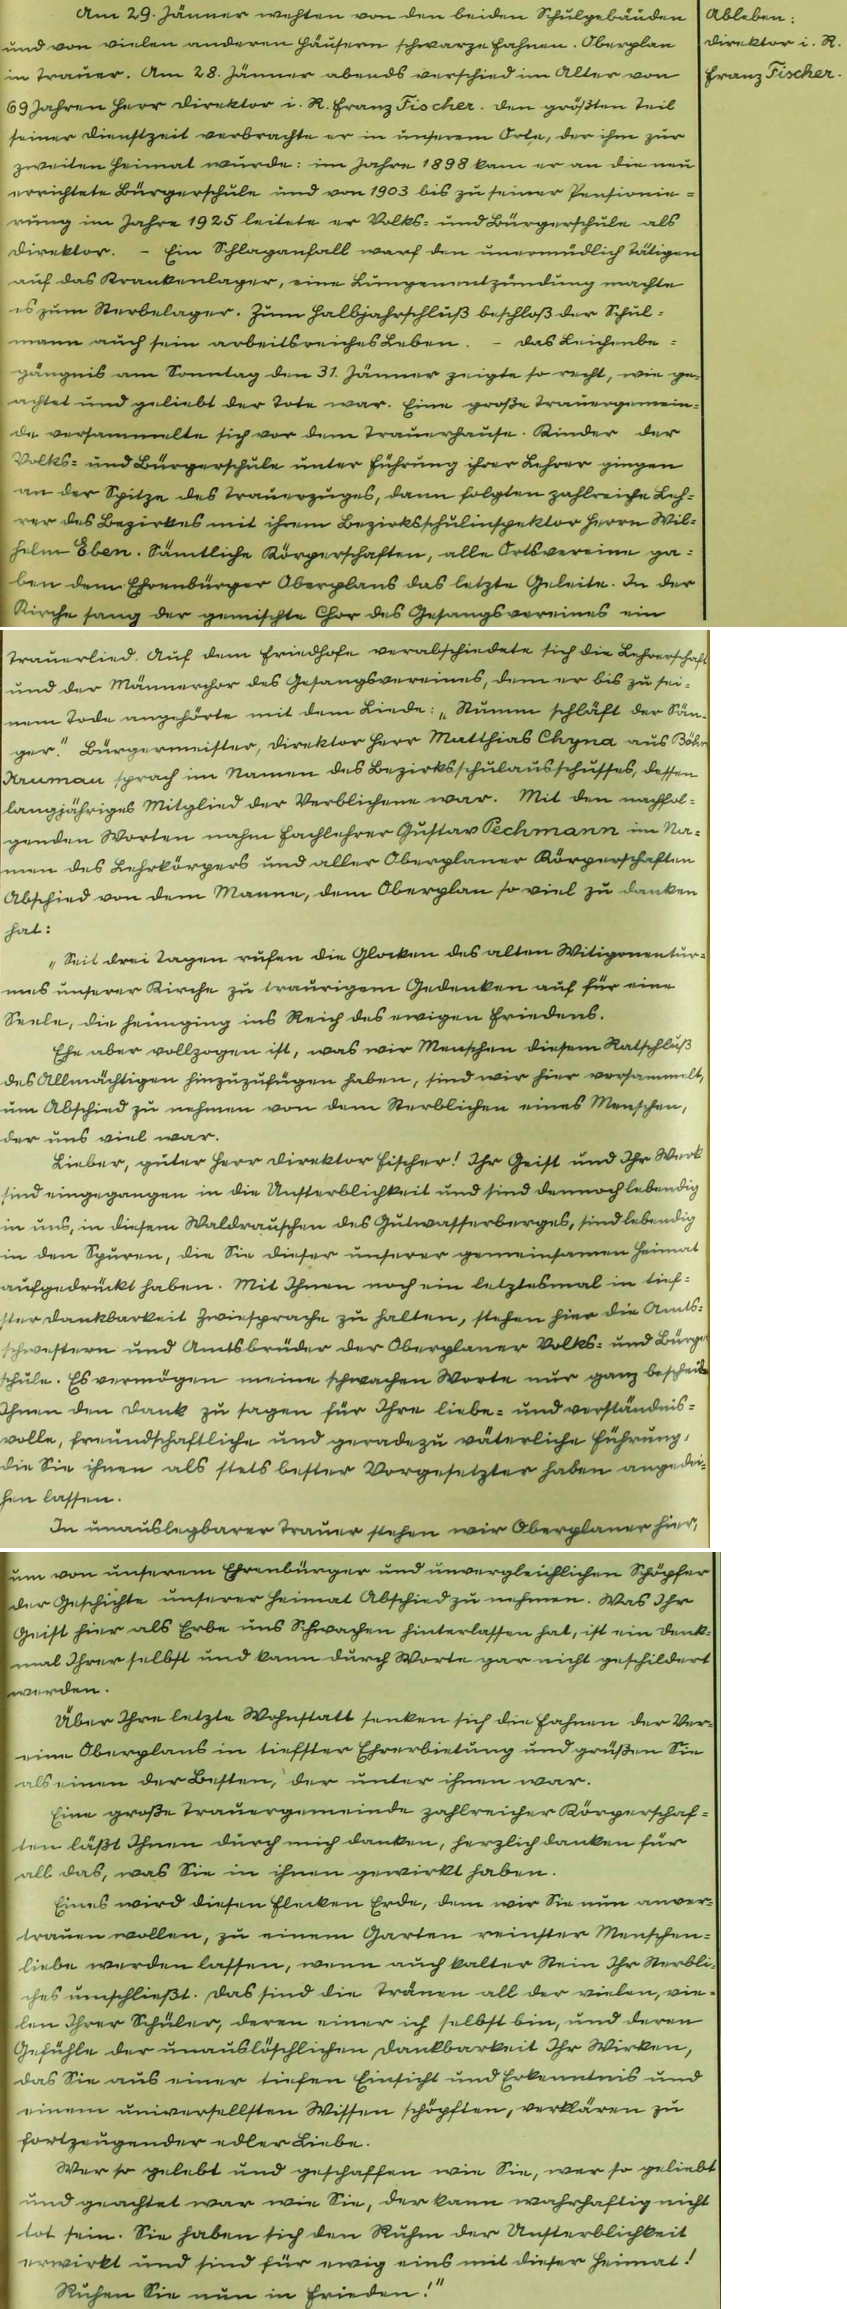 Am 29. Jänner wehten von den beiden Schulgebäuden
und von vielen anderen Häusern schwarze Fahnen. Oberplan
in Trauer. Am 28. Jänner abends verschied im Alter von
69 Jahren Herr Direktor i. R. Franz Fischer. Den größten Teil
seiner Dienstzeit verbrachte er in unserem Orte, der ihm zur
zweiten Heimat wurde: im Jahre 1898 kam er an die neu
errichtete Bürgerschule und von 1903 bis zu seiner Pensionie=
rung im Jahre 1925 leitete er Volks= und Bürgerschule als
Direktor. – Ein Schlaganfall warf den unermüdlich Tätigen
auf das Krankenlager, eine Lungenentzündung machte
es zum Sterbelager. Zum Halbjahrschluß beschloß der Schul=
mann auch sein arbeitsreiches Leben. – Das Leichenbe=
gängnis am Sonntag den 31. Jänner zeigte so recht, wie ge=
achtet und geliebt der Tote war. Eine große Trauergemein=
de versammelte sich vor dem Trauerhause. Kinder der
Volks= und Bürgerschule unter Führung ihrer Lehrer gingen
an der Spitze des Trauerzuges, dann folgten zahlreiche Leh=
rer des Bezirkes mit ihrem Bezirksschulinspektor Herrn Wil=
helm Eben. Sämtliche Körperschaften, alle Ortsvereine ga=
ben dem Ehrenbürger Oberplans das letzte Geleite. In der
Kirche sang der gemischte Chor des Gesangsvereines ein
Ableben:
Direktor i. R.
Franz Fischer.
Trauerlied. Auf dem Friedhofe verabschiedete sich die Lehrerschaft
und der Männerchor des Gesangsvereines, dem er bis zu sei=
nem Tode angehörte mit dem Liede: „Stumm schläft der Sän=
ger." Bürgermeister, Direktor Herr Matthias Chyna aus Böhm.
Krumau sprach im Namen des Bezirksschulausschusses, dessen
langjähriges Mitglied der Verblichene war. Mit den nachfol=
genden Worten nahm Fachlehrer Gustav Pechmann im Na=
men des Lehrkörpers und aller Oberplaner Körperschaften
Abschied von dem Manne, dem Oberplan so viel zu danken
hat:
„Seit drei Tagen rufen die Glocken des alten Witigonentur=
mes unserer Kirche zu traurigem Gedenken auf für eine
Seele, die heimging ins Reich des ewigen Friedens.
Ehe aber vollzogen ist, was wir Menschen diesem Ratschluß
des Allmächtigen hinzuzufügen haben, sind wir hier versammelt,
um Abschied zu nehmen von dem Sterblichen eines Menschen,
der uns viel war.
Lieber, guter Herr Direktor Fischer! Ihr Geist und Ihr Werk
sind eingegangen in die Unsterblichkeit und sind dennoch lebendig
in uns, in diesem Waldrauschen des Gutwasserberges, sind lebendig
in den Spuren, die Sie dieser unserer gemeinsamen Heimat
aufgedrückt haben. Mit Ihnen noch ein letztesmal in tief=
ster Dankbarkeit Zwiesprache zu halten, stehen hier die Amts=
schwestern und Amtsbrüder der Oberplaner Volks= und Bürger
schule. Es vermögen meine schwachen Worte nur ganz bescheiden
Ihnen den Dank zu sagen für Ihre liebe= und verständnis=
volle, freundschaftliche und geradezu väterliche Führung,
die Sie ihnen als stets bester Vorgesetzter haben angedei=
hen lassen.
In unauslegbarer Trauer stehen wir Oberplaner hier,
um von unserem Ehrenbürger und unvergleichlichen Schöpfer
der Geschichte unserer Heimat Abschied zu nehmen. Was Ihr
Geist hier als Erbe uns Schwachen hinterlassen hat, ist ein Denk=
mal Ihrer selbst und kann durch Worte gar nicht geschildert
werden.
Über Ihre letzte Wohnstatt senken sich die Fahnen der Ver=
eine Oberplans in tiefster Ehrerbietung und grüßen Sie
als einen der Besten, der unter ihnen war.
Eine große Trauergemeinde zahlreicher Körperschaf=
ten läßt Ihnen durch mich danken, herzlich danken für
all das, was Sie in ihnen gewirkt haben.
Eines wird diesen Flecken Erde, dem wir Sie nun anver=
trauen wollen, zu einem Garten reinster Menschen=
liebe werden lassen, wenn auch kalter Stein Ihr Sterbli=
ches umschließt. Das sind die Tränen all der vielen, vie=
len Ihrer Schüler, deren einer ich selbst bin, und deren
Gefühle der unauslöschlichen Dankbarkeit Ihr Wirken,
das Sie aus einer tiefen Einsicht und Erkenntnis und
einem universellsten Wissen schöpften, verklären zu
fortzeugender edler Liebe.
Wer so gelebt und geschaffen wie Sie, wer so geliebt
und geachtet war wie Sie, der kann wahrhaftig nicht
tot sein. Sie haben sich den Ruhm der Unsterblichkeit
erwirkt und sind für ewig eins mit dieser Heimat!
Ruhen Sie nun in Frieden!"